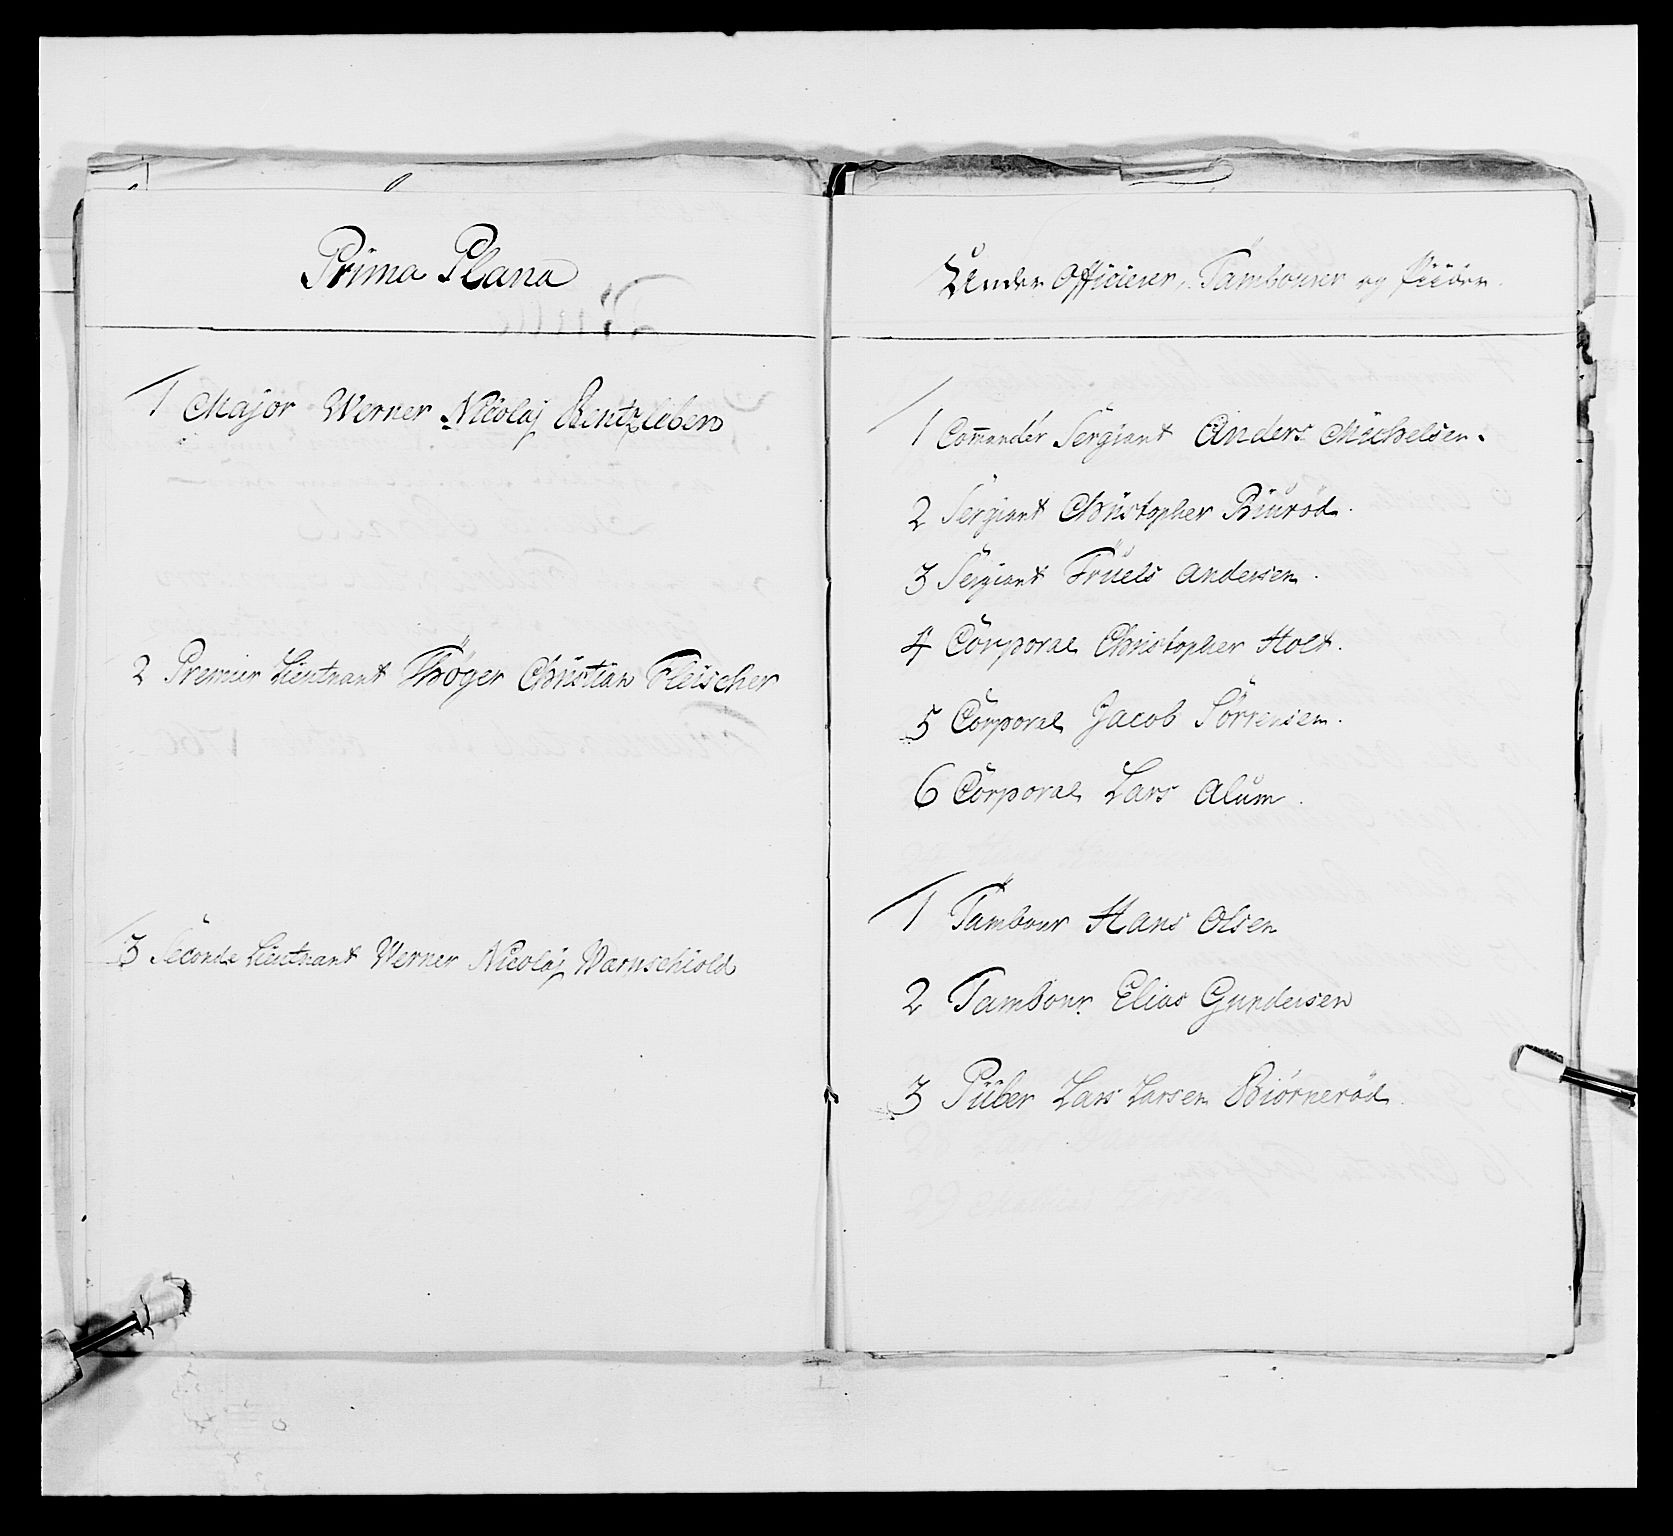 Prima Plana
1 Major Werner Nicolaj Bentzleben
2 Premier Lieutnant Thöger Christian Fleischer
3 Seconde Lieutnant Werner Nicolaj Warnschiold
Under Officierer, Tambourer og
1 Com̄andér Sergiant Anders Michelsen.
2 Sergiant Christopher Biuröd.
3 Sergiant Truels Andersen.
4 Corporal Christopher Holt.
5 Corporal Jacob Sörrensen.
6 Corporal Lars Alum.
1 Tambour Hans Olsen
2 Tambour Elias Gundersen
3 Piiber Lars Larsen Biörneröd.